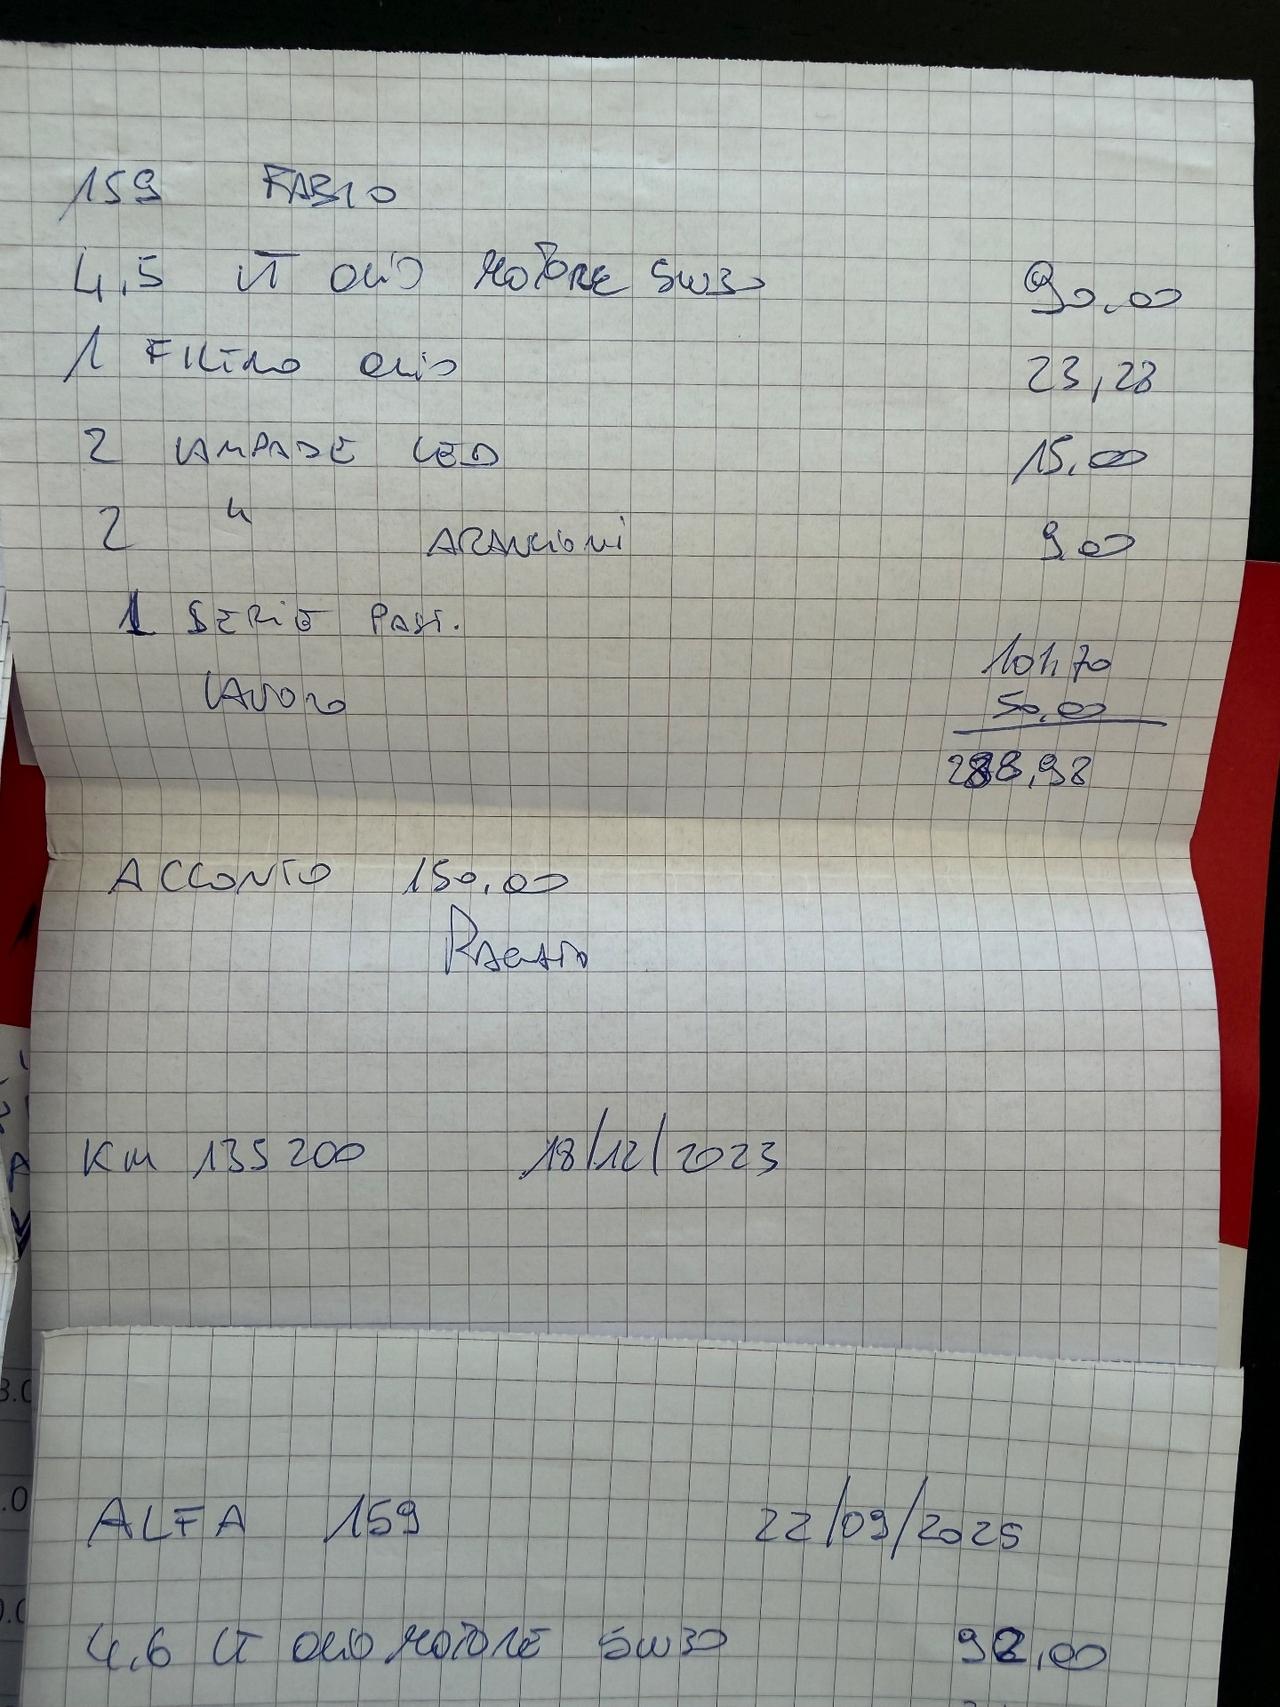 159 FABIO
4,5 LT OLIO MOTORE 5W30 90,00
1 FILTRO OLIO 23,28
2 LAMPADE LED 15,00
2 " ARANCIONI 9,00
1 SERIE PAST. 101,70
LAVORO 50,00
288,98
ACCONTO 150,00
PAGATO
KM 135200 18/12/2023
ALFA 159 22/09/2025
4,6 LT OLIO MOTORE 5W30 92,00